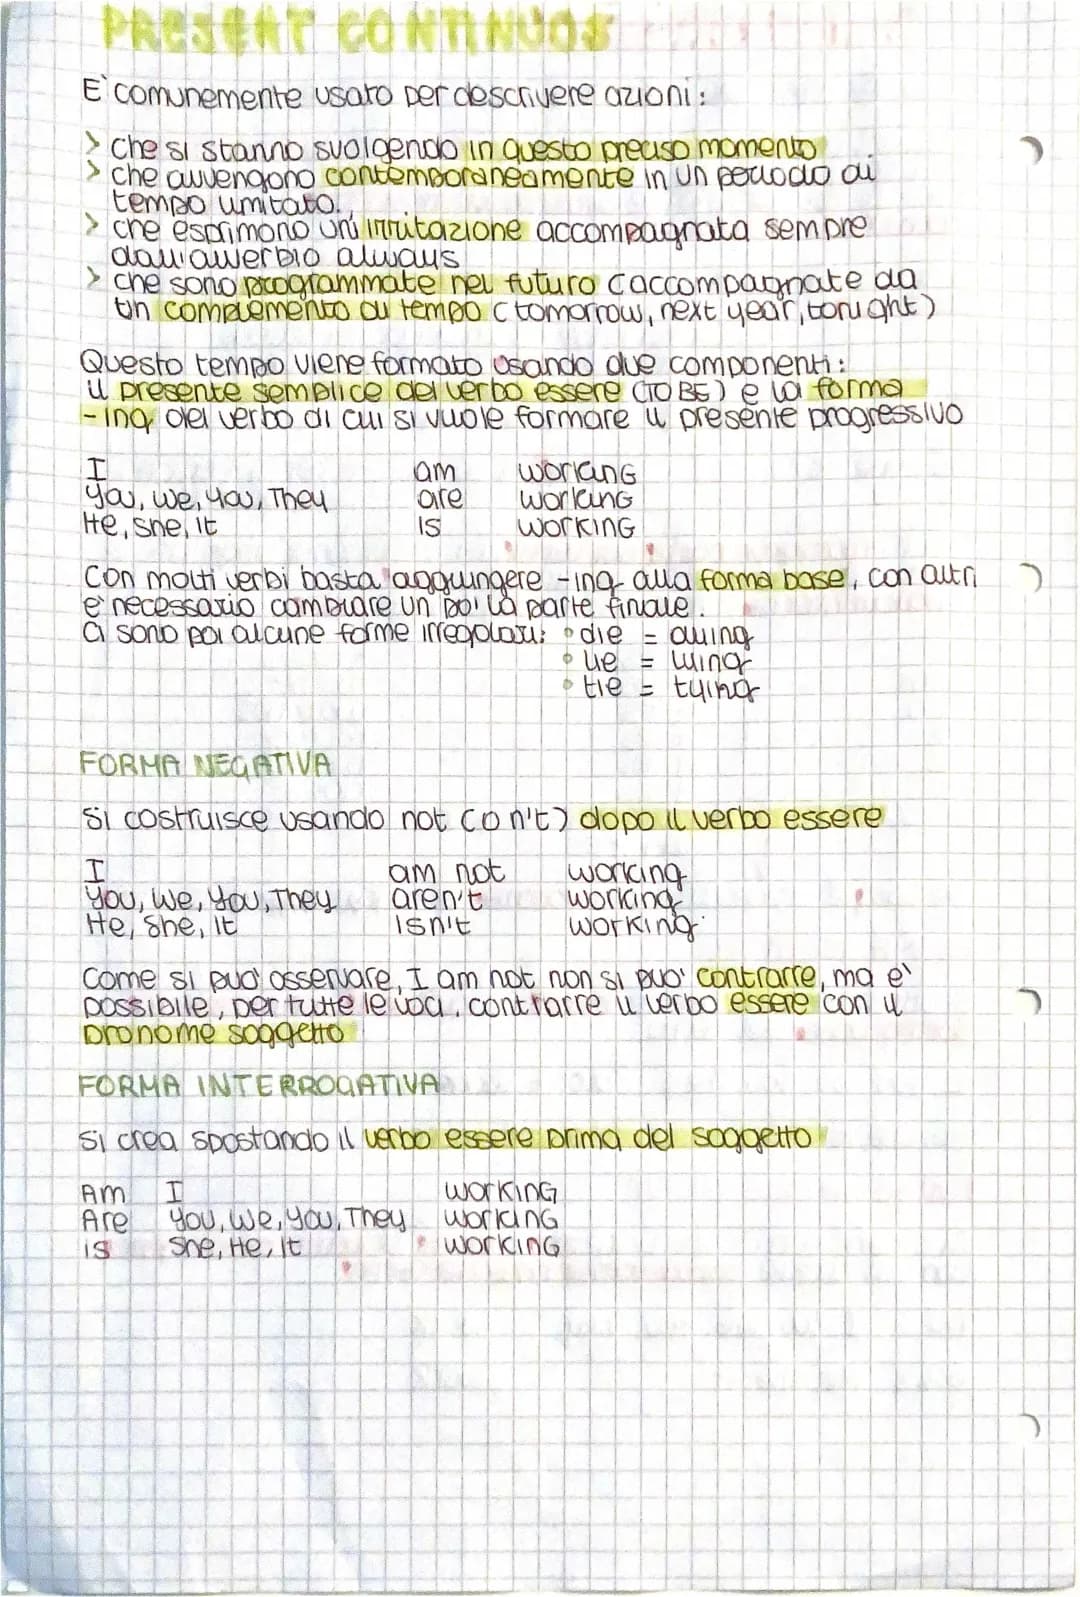 PRESENT CONTINUOS
E' comunemente usato per descrivere azioni:
> che si stanno svolgendo in questo preciso momento
> che avvengono contemporaneamente in un periodo di
tempo limitato.
> che esprimono un'irritazione accompagnata sempre
dall'avverbio always
> che sono programmate nel futuro (accompagnate da
un complemento di tempo (tomorrow, next year, tonight)
Questo tempo viene formato usando due componenti:
il presente semplice del verbo essere (TO BE) e la forma
-ing del verbo di cui si vuole formare il presente progressivo
I am working
You, We, You, They are working
He, She, It is working
Con molti verbi basta aggiungere -ing alla forma base, con altri
e' necessario cambiare un po' la parte finale.
Ci sono poi alcune forme irregolari: • die = dying
• lie = lying
• tie = tying
FORMA NEGATIVA
Si costruisce usando not (o n't) dopo il verbo essere
I am not working
You, We, You, They aren't working
He, She, It isn't working
Come si puo' osservare, I am not non si puo' contrarre, ma e'
possibile, per tutte le voci, contrarre il verbo essere con il
pronome soggetto
FORMA INTERROGATIVA
Si crea spostando il verbo essere prima del soggetto
Am I working
Are You, We, You, They working
is She, He, It working